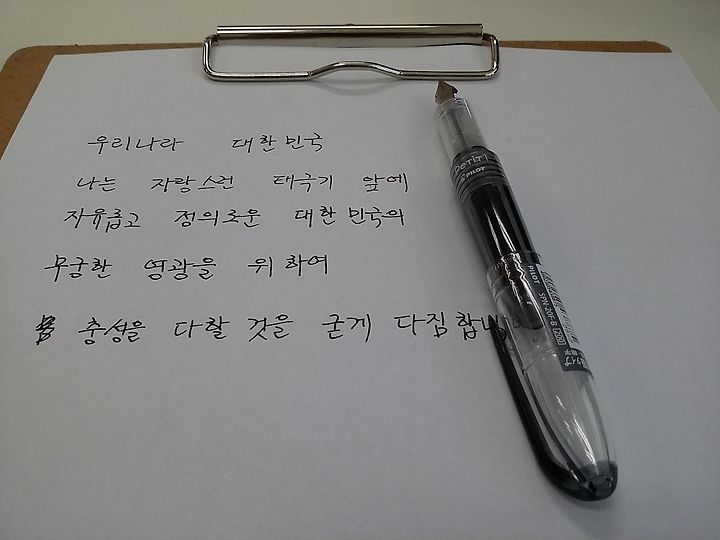 우리나라 대한민국
나는 자랑스런 태극기 앞에
자유롭고 정의로운 대한민국의
무궁한 영광을 위하여
충성을 다할 것을 굳게 다짐합니
Petit1
PILOT
PILOT
SPN-20F-B